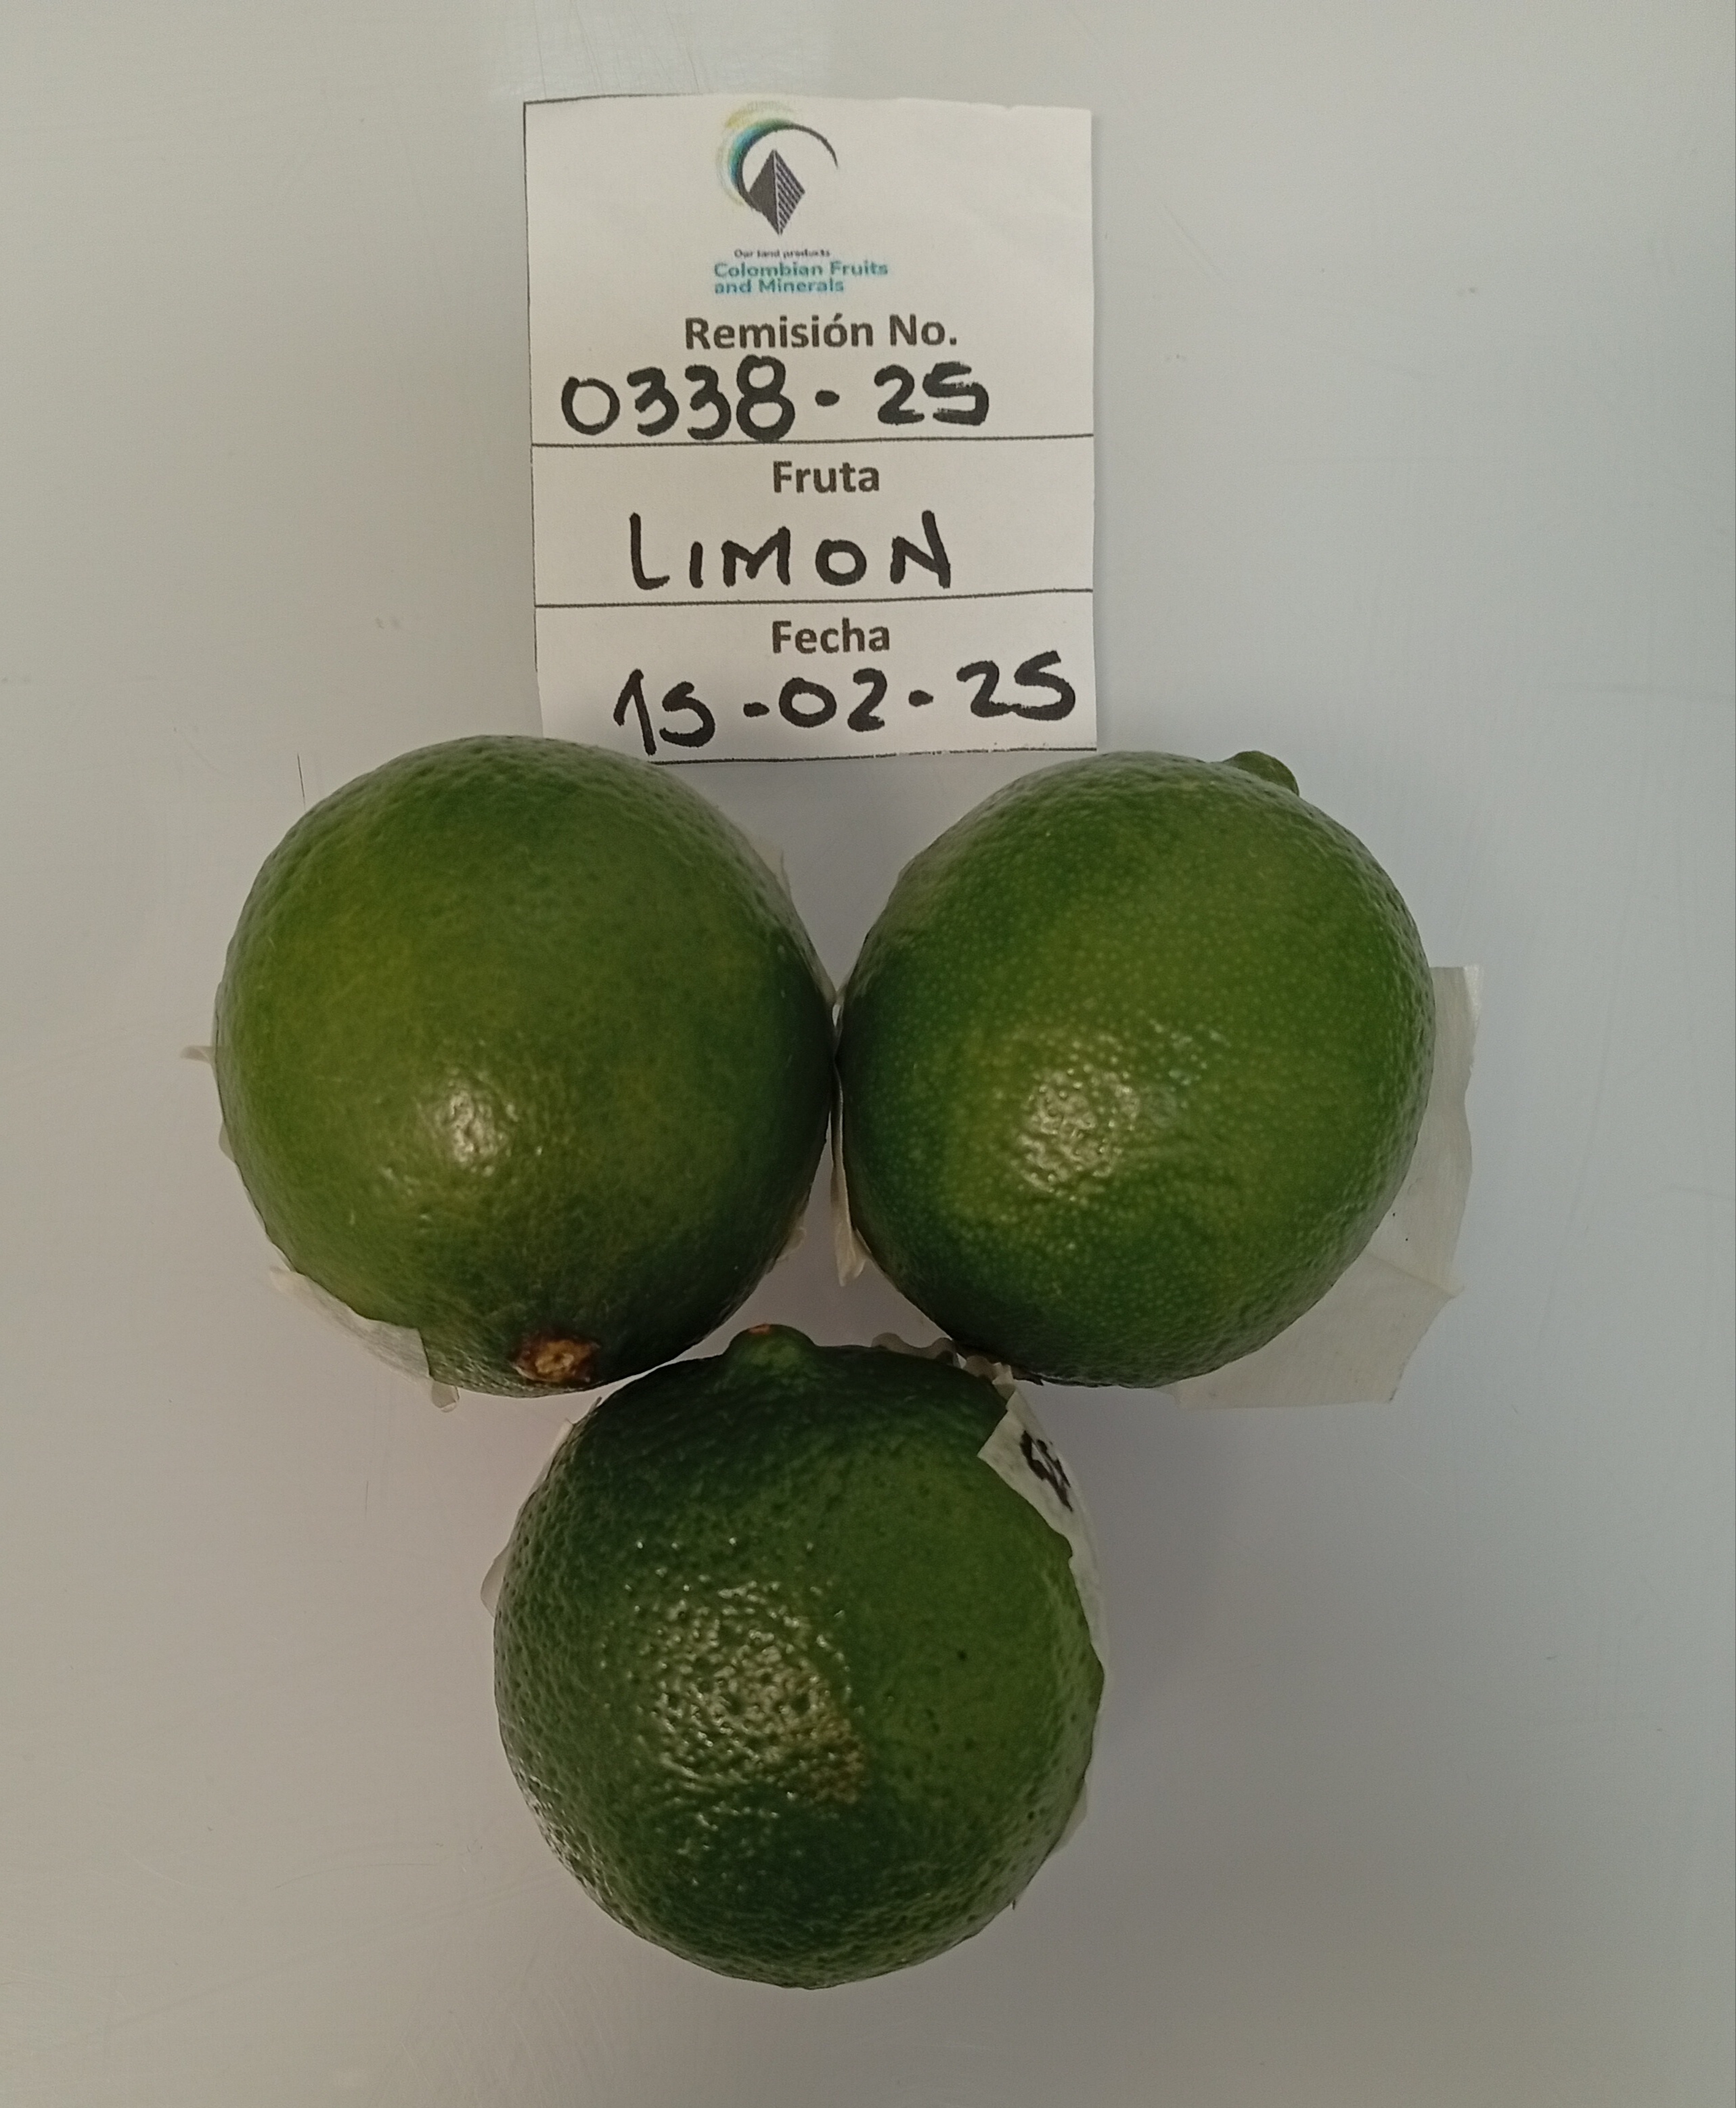 Our land products
Colombian Fruits
and Minerals
Remisión No.
0338-25
Fruta
LIMON
Fecha
15-02-25